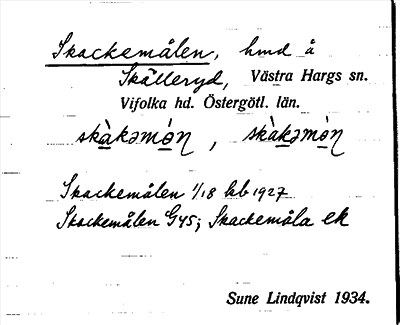 Skackemålen, hmd å
Skälleryd, Västra Hargs sn.
Vifolka hd. Östergötl. län.
skàkəmóņ, skàkəmòņ
Skackemålen 1/18 kb 1927
Skackemålen GYS; Skackemåla ek
Sune Lindqvist 1934.